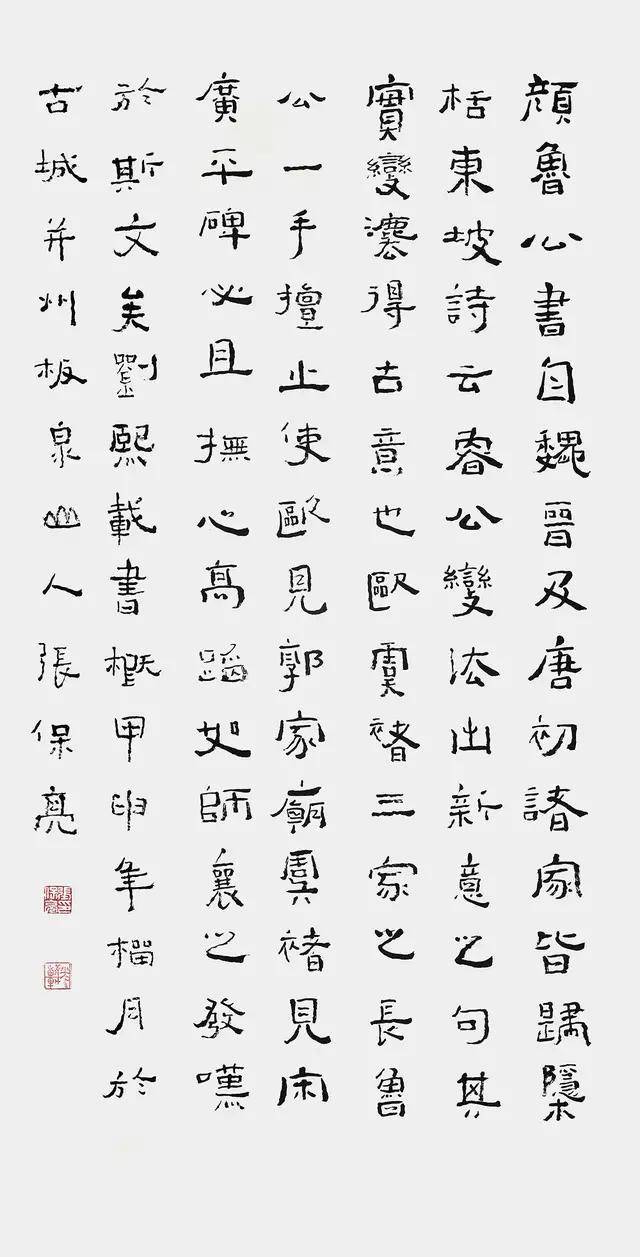 顏魯公書自魏晉及唐初諸家皆歸櫽
栝東坡詩云公變法出新意之句其
實變灋得古意也歐虞褚三家之長魯
公一手擅止使歐見郭家廟虞褚見宋
廣平碑必且撫心高蹈如師襄之發嘆
於斯文矣劉熙載書概甲申年榴月於
古城并州板泉山人張保亮